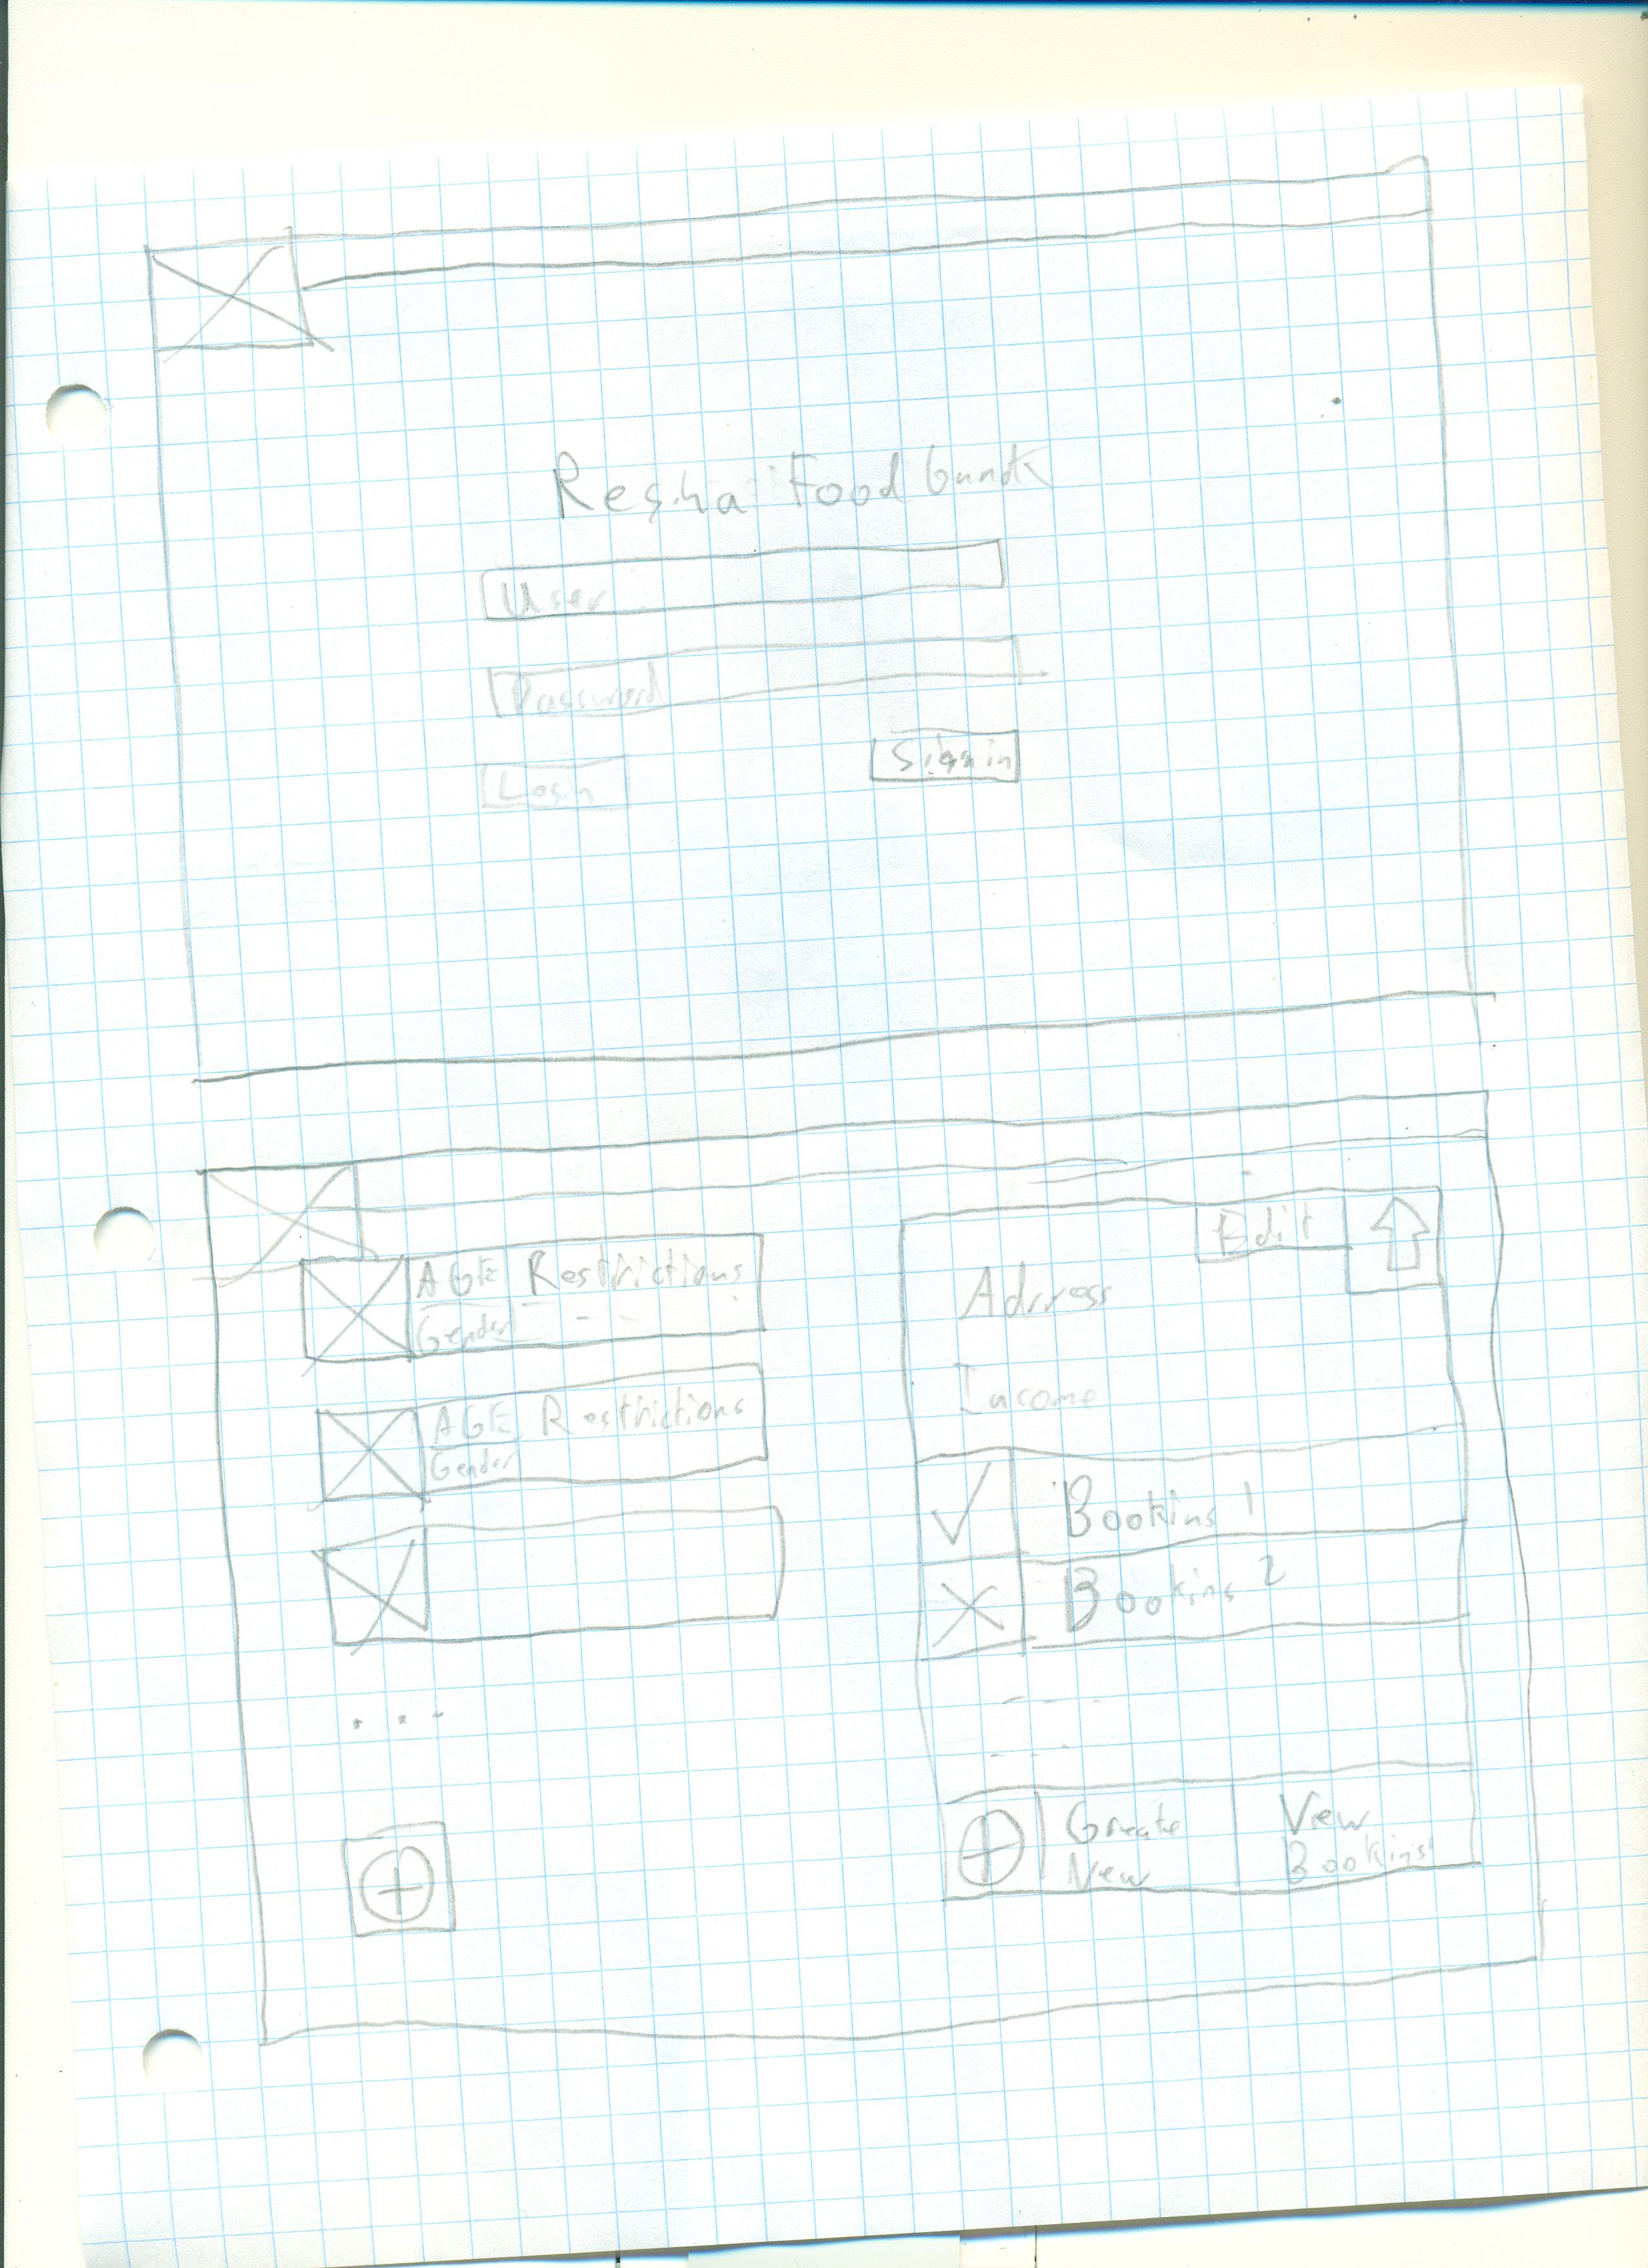 Food bank
User
Password
Login
Sign in
AGE Restrictions
Gender
AGE Restrictions
Gender
Edit
Adrress
Income
Booking 1
Booking 2
Create
New
View
Bookings